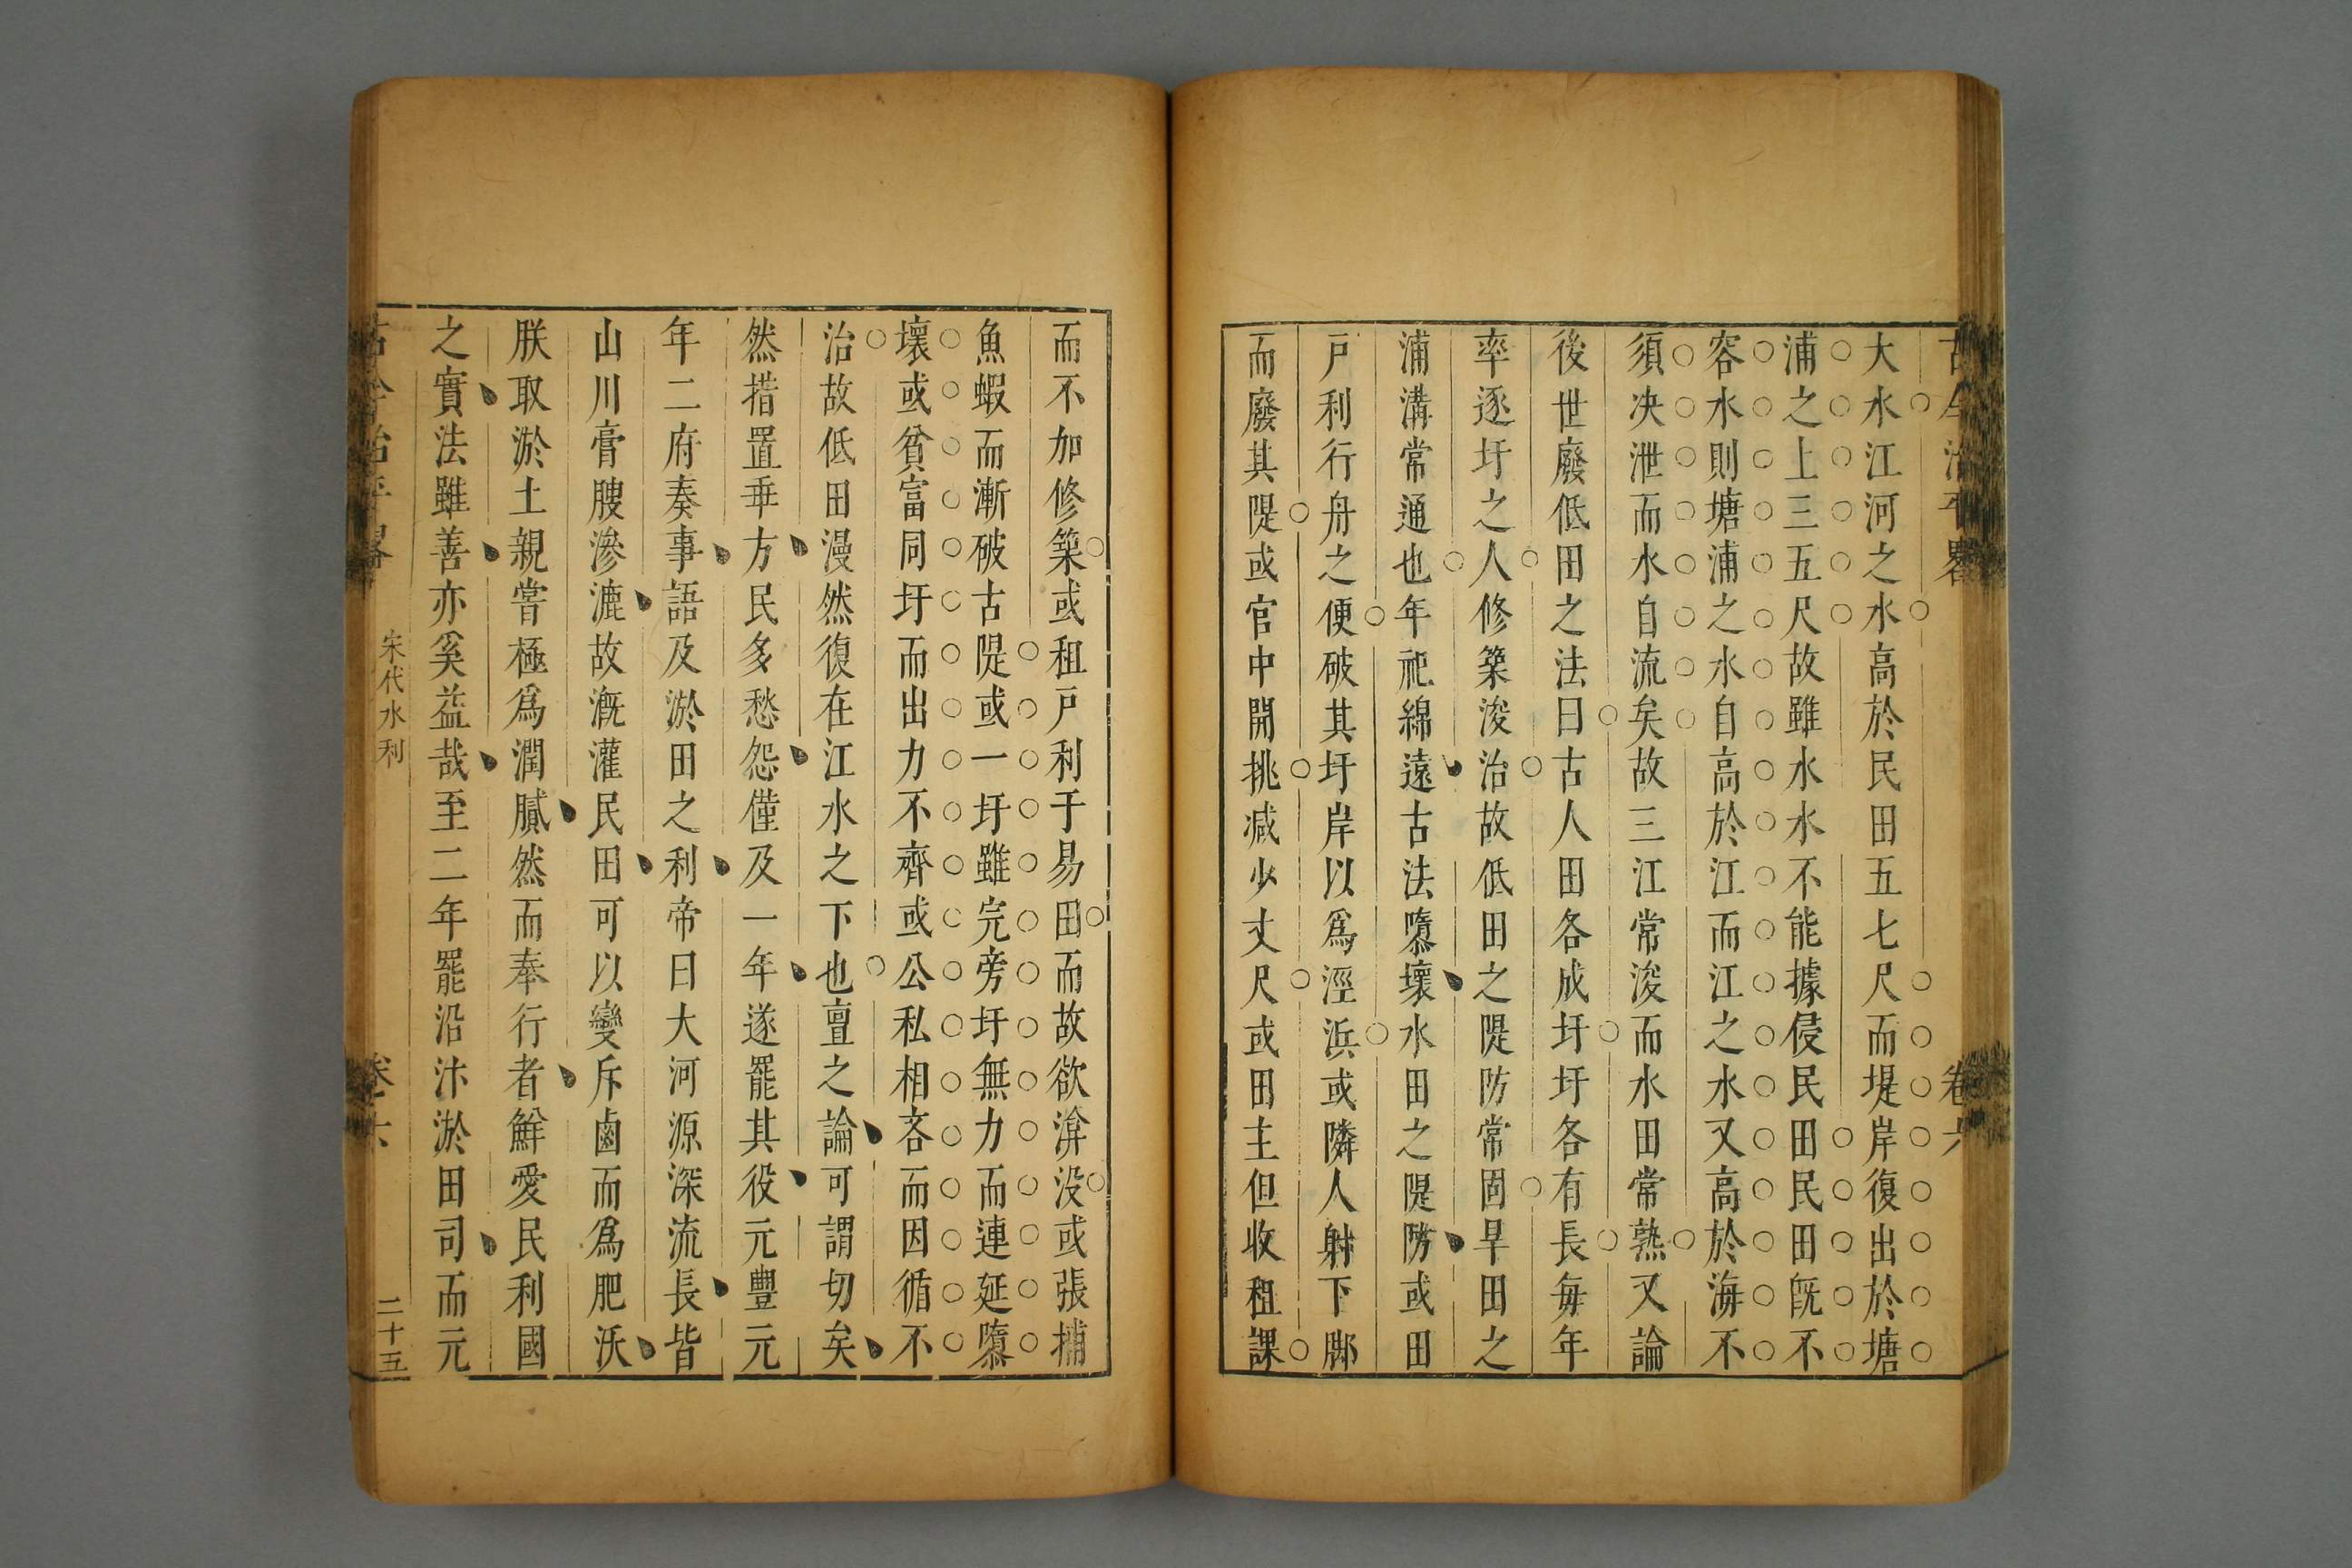 古今治平畧 卷六
大水江河之水高於民田五七尺而堤岸復出於塘
浦之上三五尺故雖水水不能據侵民田民田旣不
容水則塘浦之水自高於江而江之水又高於海不
須决泄而水自流矣故三江常浚而水田常熟又論
後世廢低田之法曰古人田各成圩圩各有長每年
率逐圩之人修築浚治故低田之隄防常固旱田之
浦溝常通也年祀綿遠古法隳壞水田之隄防或田
戶利行舟之便破其圩岸以爲涇浜或隣人射下脚
而廢其隄或官中開挑减少丈尺或田主但收租課
而不加修築或租戶利于易田而故欲渰没或張捕
魚蝦而漸破古隄或一圩雖完旁圩無力而連延隳
壞或貧富同圩而出力不齊或公私相吝而因循不
治故低田漫然復在江水之下也亶之論可謂切矣
然措置乖方民多愁怨僅及一年遂罷其役元豐元
年二府奏事語及淤田之利帝曰大河源深流長皆
山川膏腴滲漉故漑灌民田可以變斥鹵而爲肥沃
朕取淤土親嘗極爲潤膩然而奉行者鮮愛民利國
之實法雖善亦奚益哉至二年罷沿汴淤田司而元
古今治平畧 宋代水利 卷六 二十五